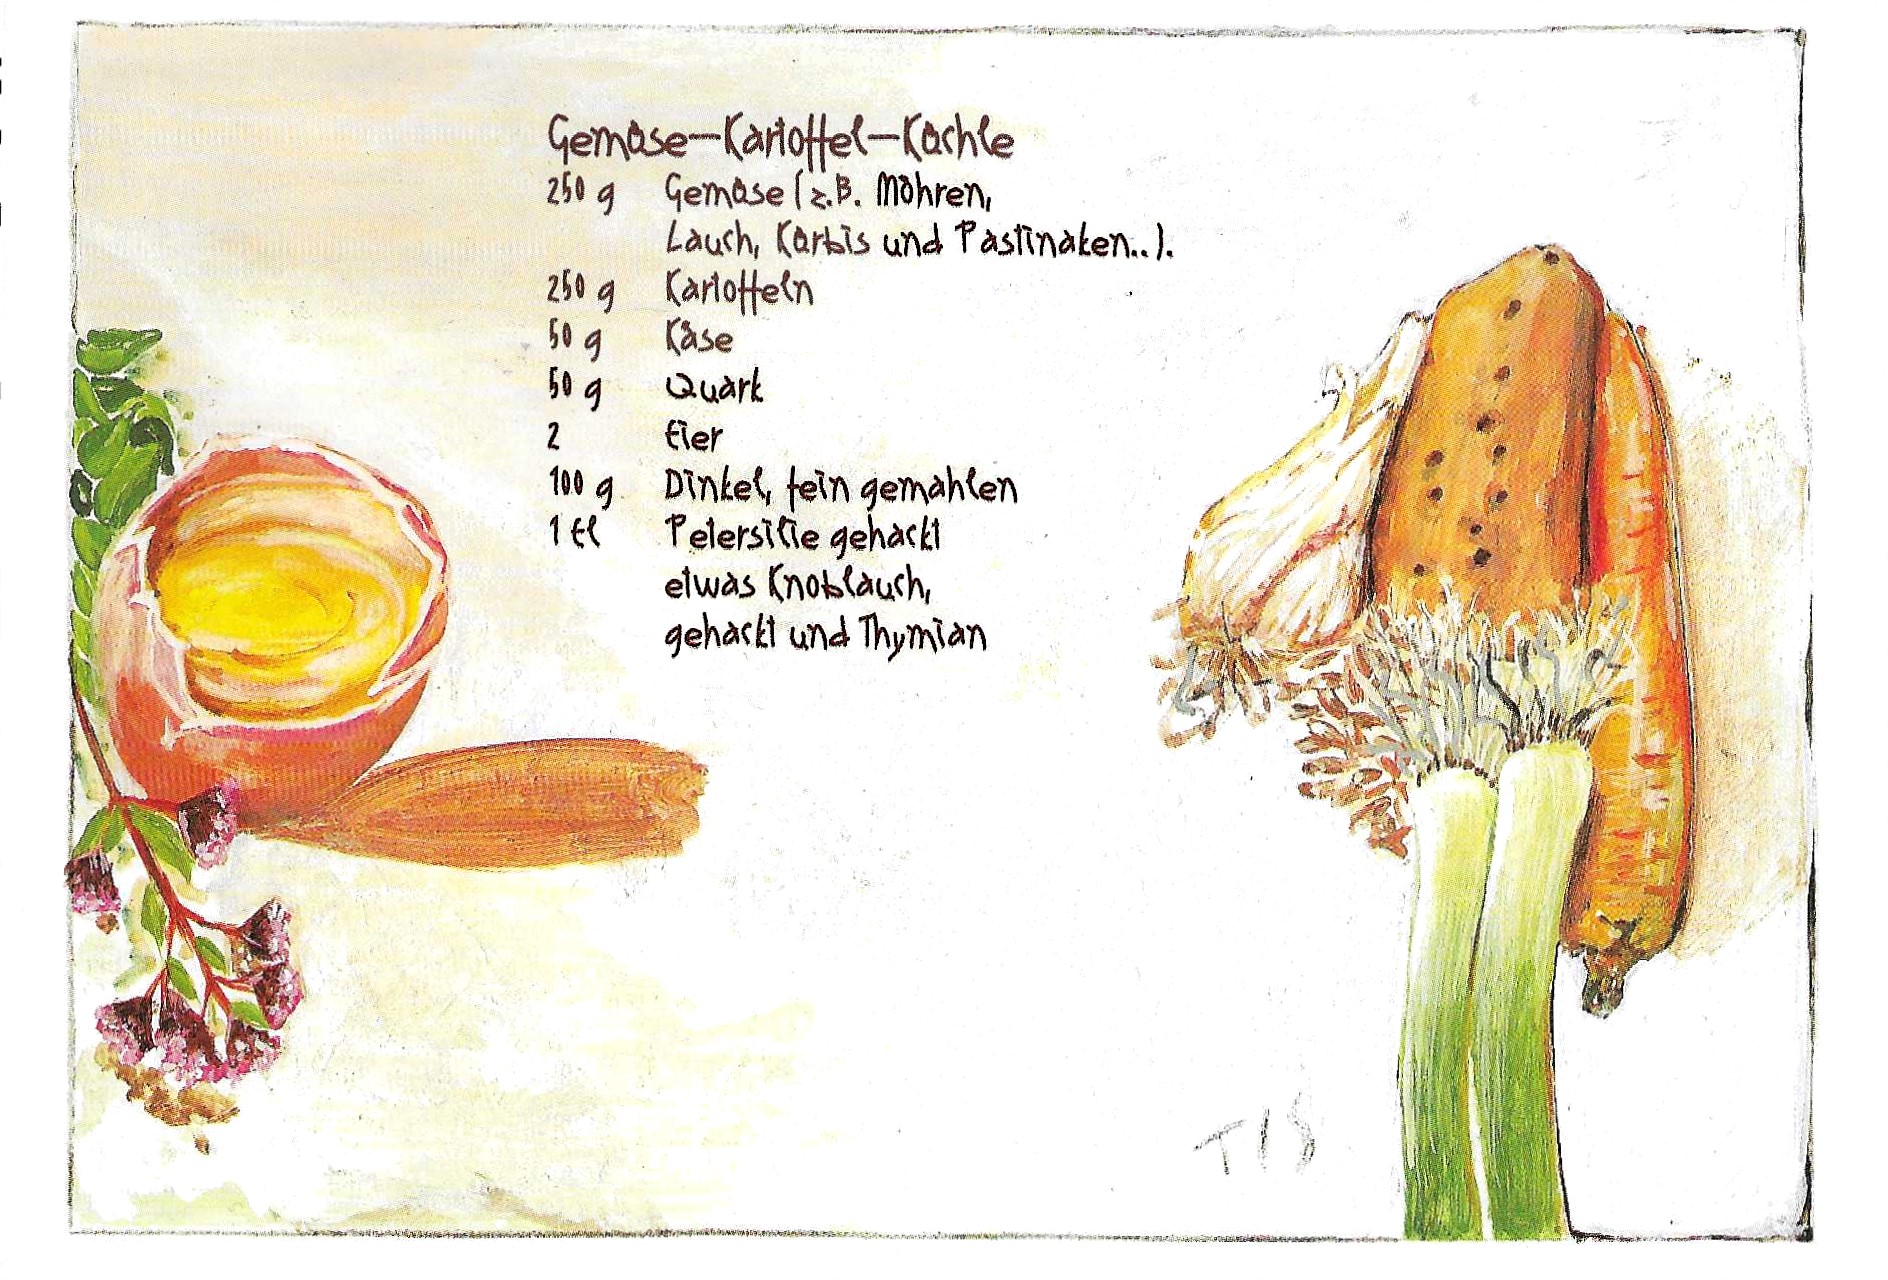 Gemüse-Kartoffel-Küchle
250 g Gemüse (z.B. Möhren,
Lauch, Kürbis und Pastinaken..).
250 g Kartoffeln
50 g Käse
50 g Quark
2 Eier
100 g Dinkel, fein gemahlen
1 El Petersilie gehackt
etwas Knoblauch,
gehackt und Thymian
TIS